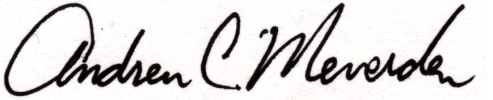 Andren C. Meverden